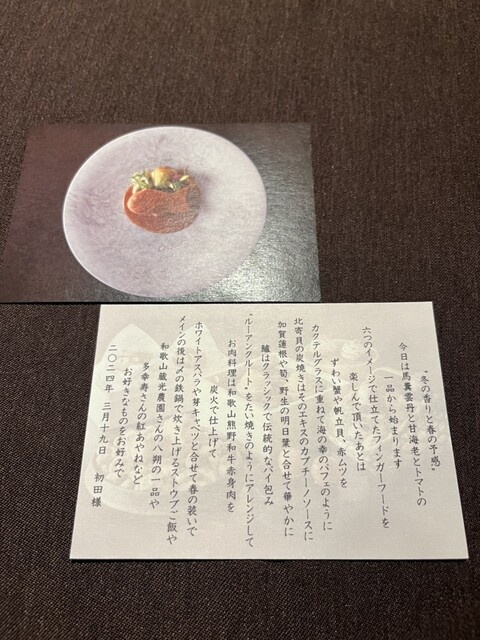 “冬の香りと春の予感”
今日は馬糞雲丹と甘海老とトマトの
一品から始まります
六つのイメージで仕立てたフィンガーフードを
楽しんで頂いたあとは
ずわい蟹や帆立貝、赤ムツを
カクテルグラスに重ねて海の幸のパフェのように
北寄貝の炭焼きはそのエキスのカプチーノソースに
加賀蓮根や筍、野生の明日葉と合せて華やかに
鱸はクラシックで伝統的なパイ包み
“ルーアンクルート”をたい焼きのようにアレンジして
お肉料理は和歌山熊野和牛赤身肉を
炭火で仕上げて
ホワイトアスパラや芽キャベツと合せて春の装いで
メインの後は〆の鉄鍋で炊き上げるストウブご飯や
和歌山蔵光農園さんの八朔の一品や
多幸寿さんの紅あやねなど
お好きなものをお好みで
二〇二四年 三月十九日 初田様